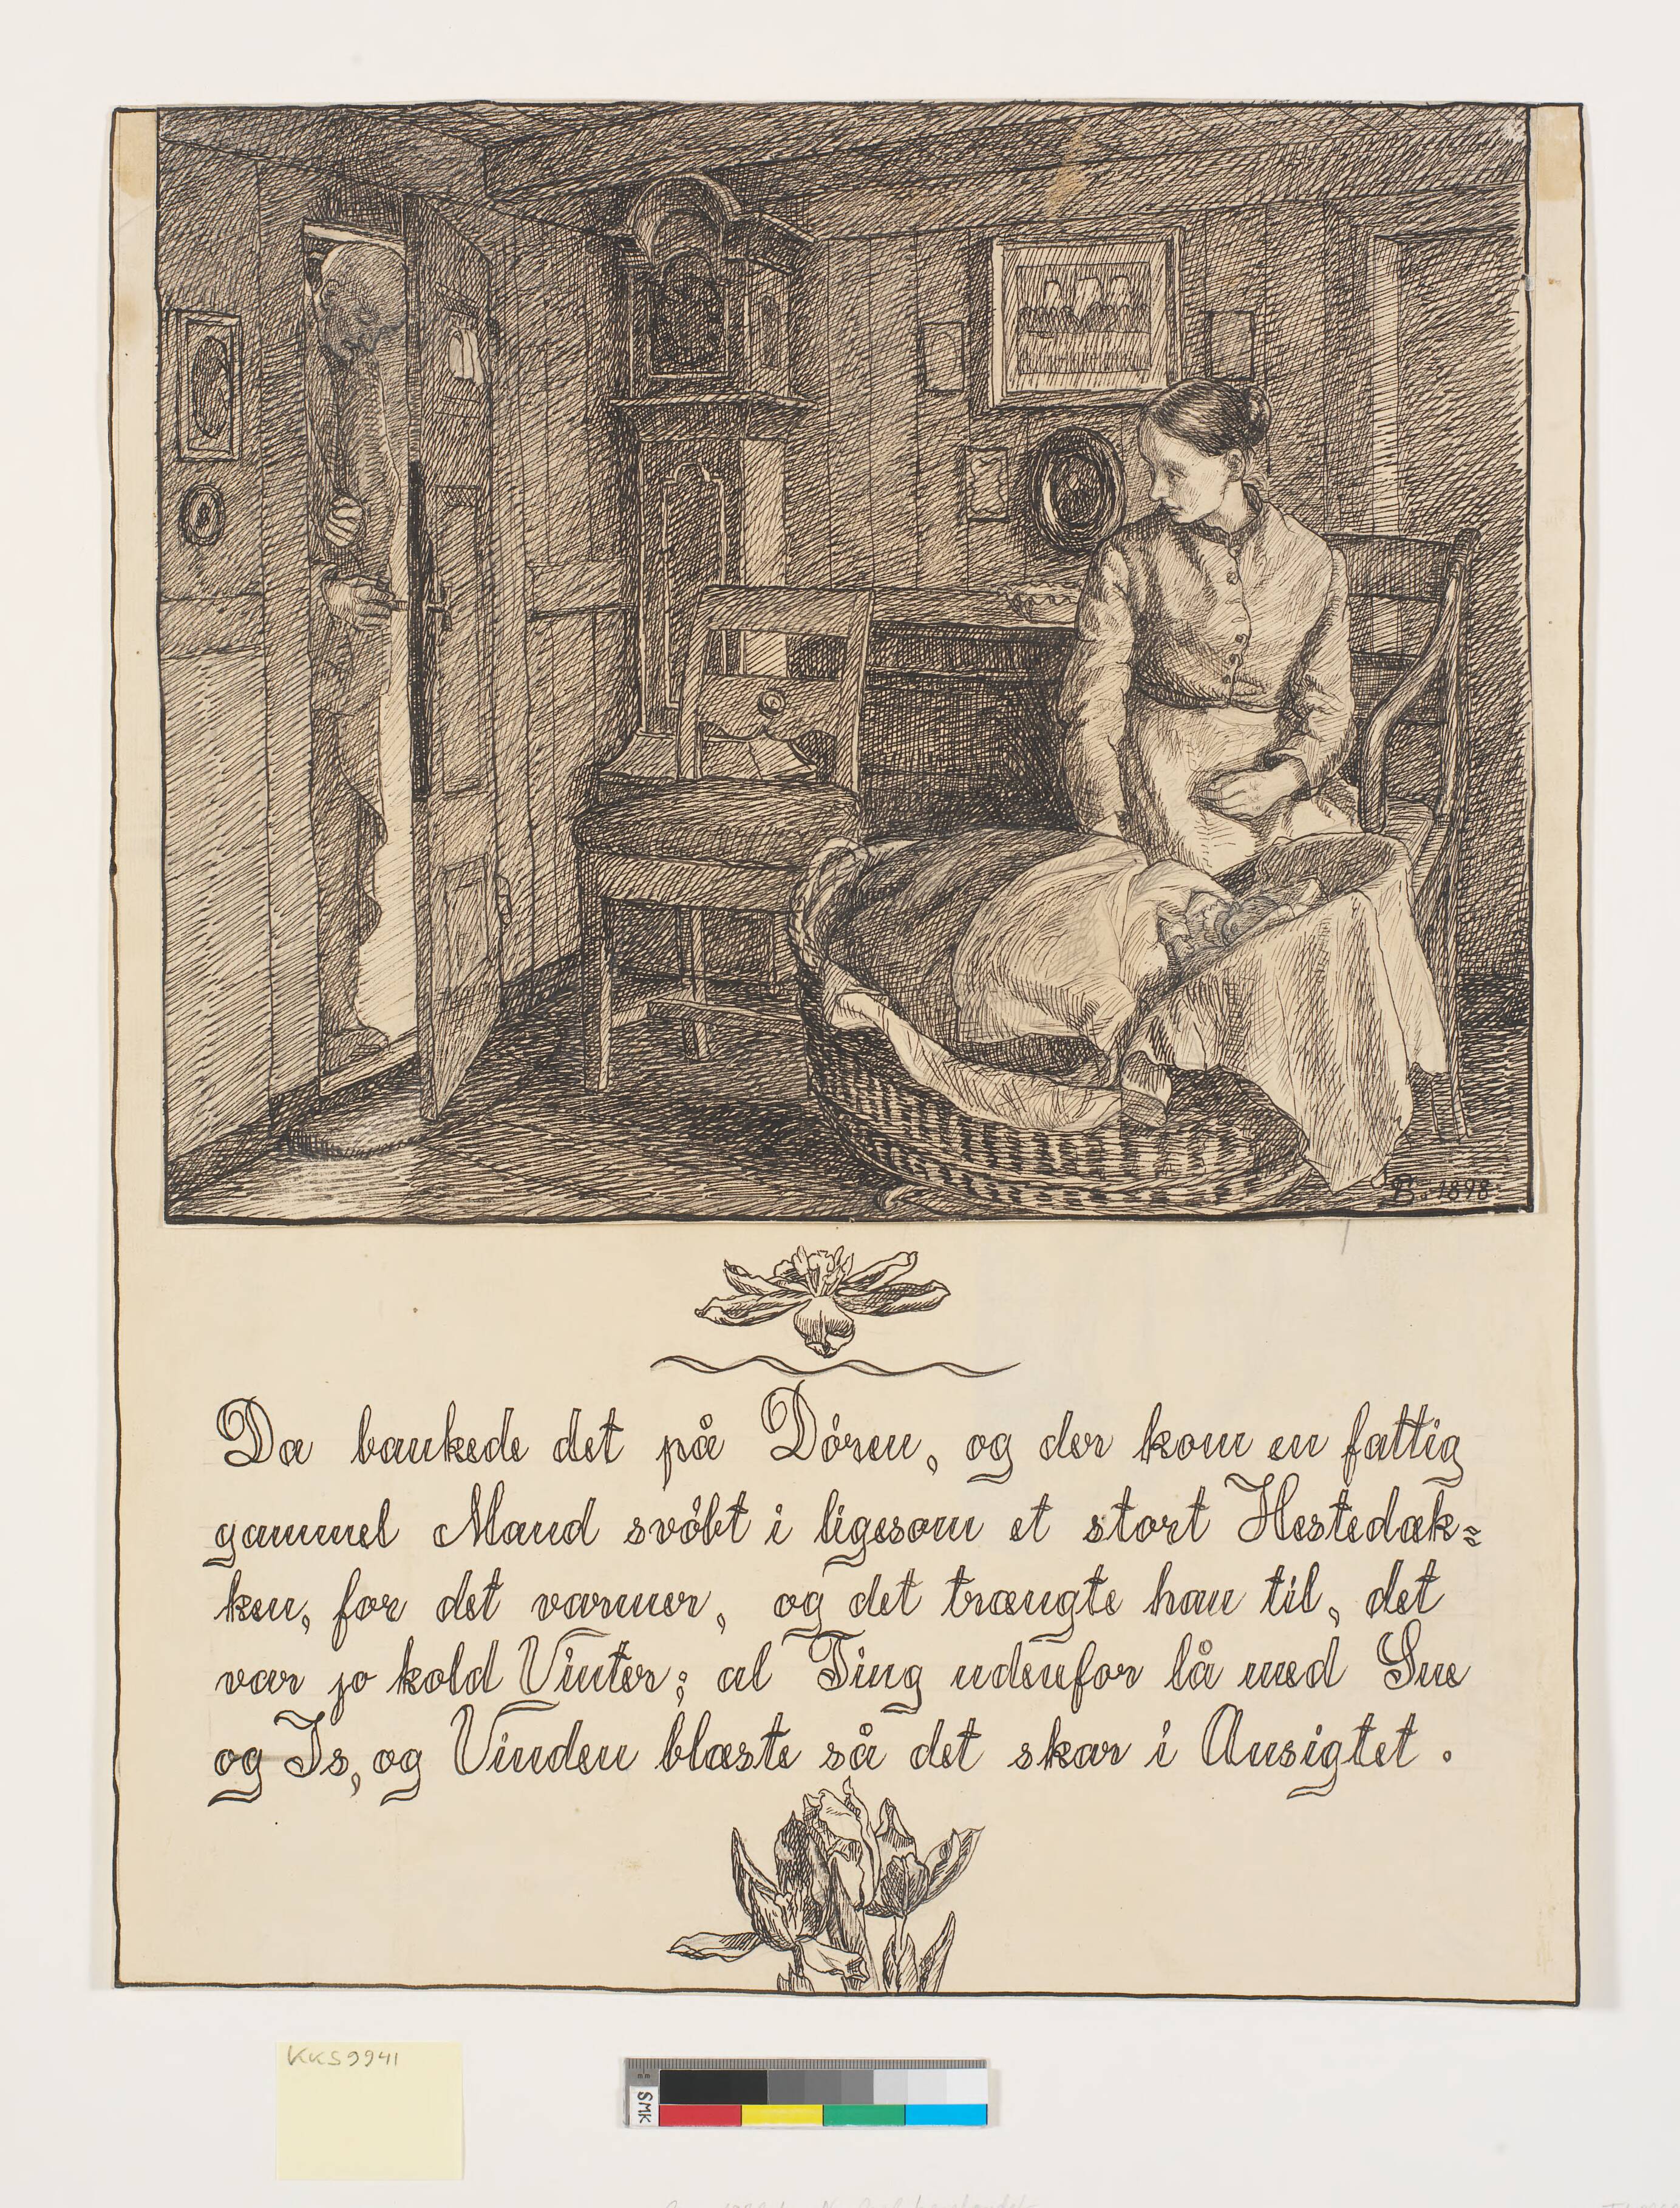 B. 1898.
Da bankede det på Døren, og der kom en fattig
gammel Mand svøbt i ligesom et stort Hestedæk=
ken, for det varmer, og det trængte han til, det
var jo kold Vinter; al Ting udenfor lå med Sne
og Is, og Vinden blæste så det skar i Ansigtet.
KKS9941
SMK